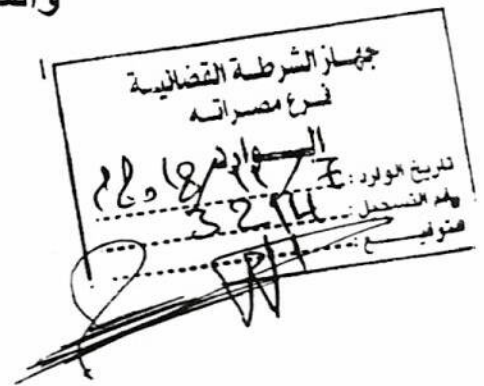 جهاز الشرطة القضائية
فرع مصراته
الوارد
تاريخ الورد :
رقم التسجيل : 3214
التوقيع :